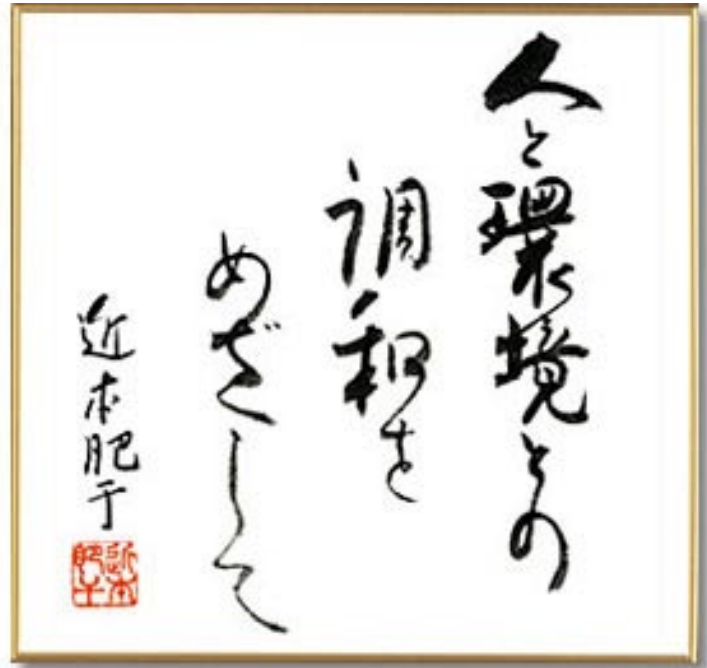 人と環境との
調和を
めざして
近本肥于
近本
肥于